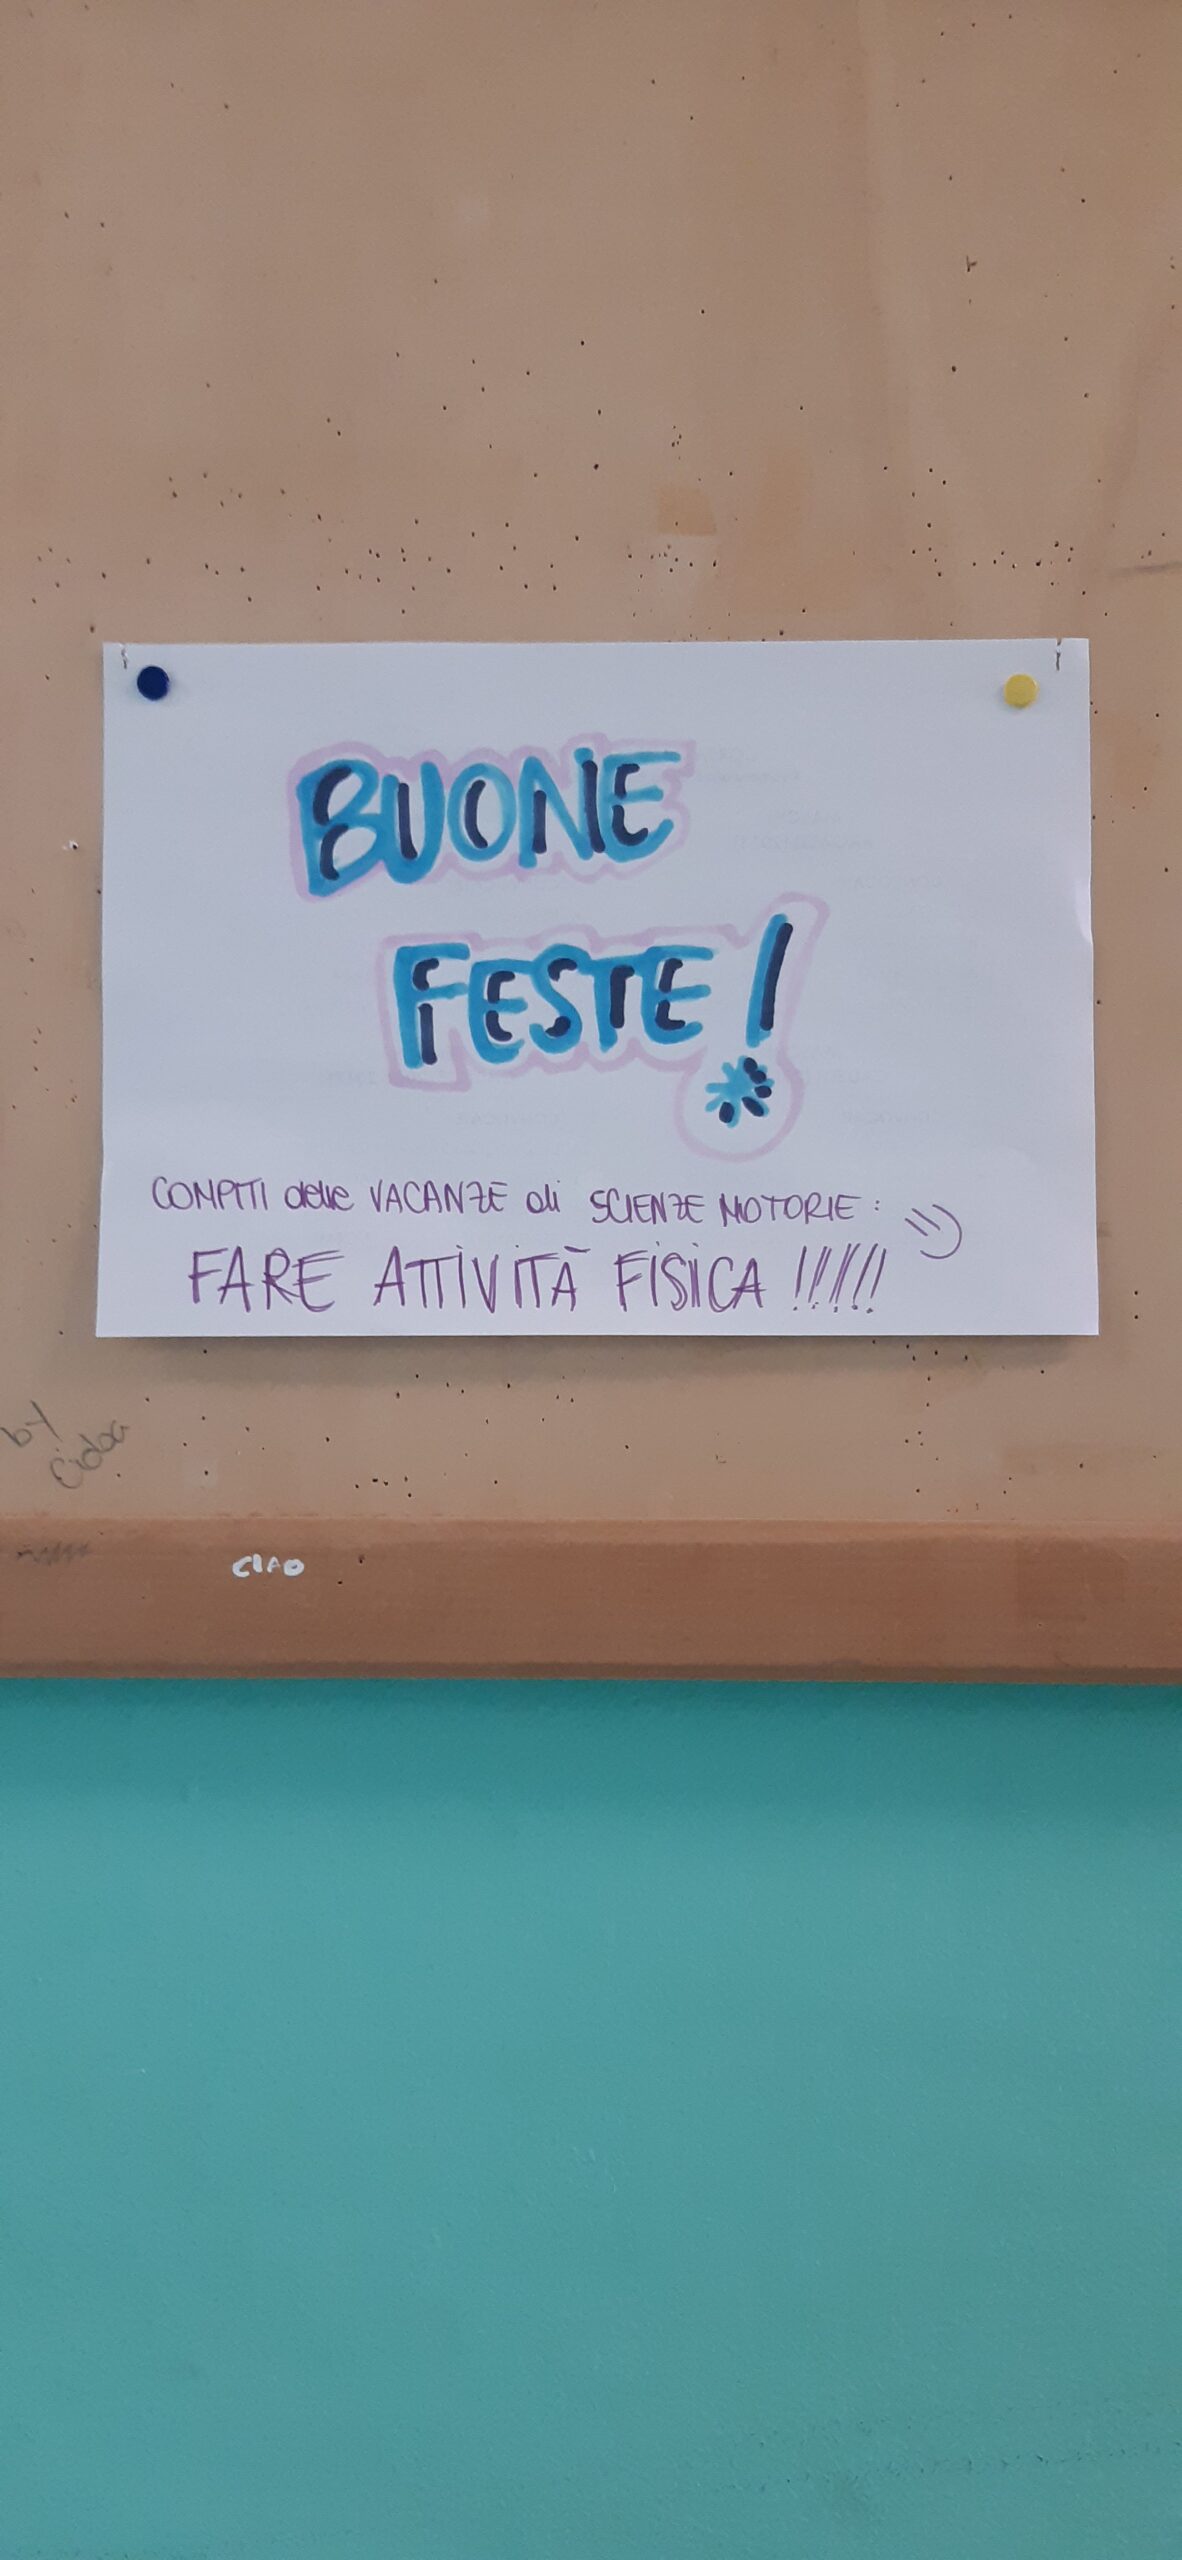 BUONE
FESTE!
COMPITI delle VACANZE di SCIENZE MOTORIE : =)
FARE ATTIVITÀ FISICA !!!!!
by
CIAO